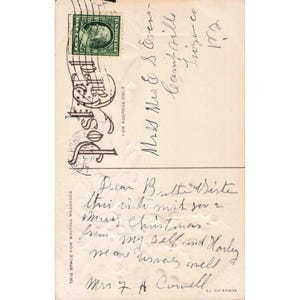 Post Card
FOR ADDRESS ONLY
Mr & Mrs E S Evans
Campville
Tioga Co
N.Y.
THIS SPACE FOR WRITING MESSAGES
Dear Brother & Sister
this is to wish you a
Merry Christmas
from my self and Harley
we are usually well
Mrs F A Cornell